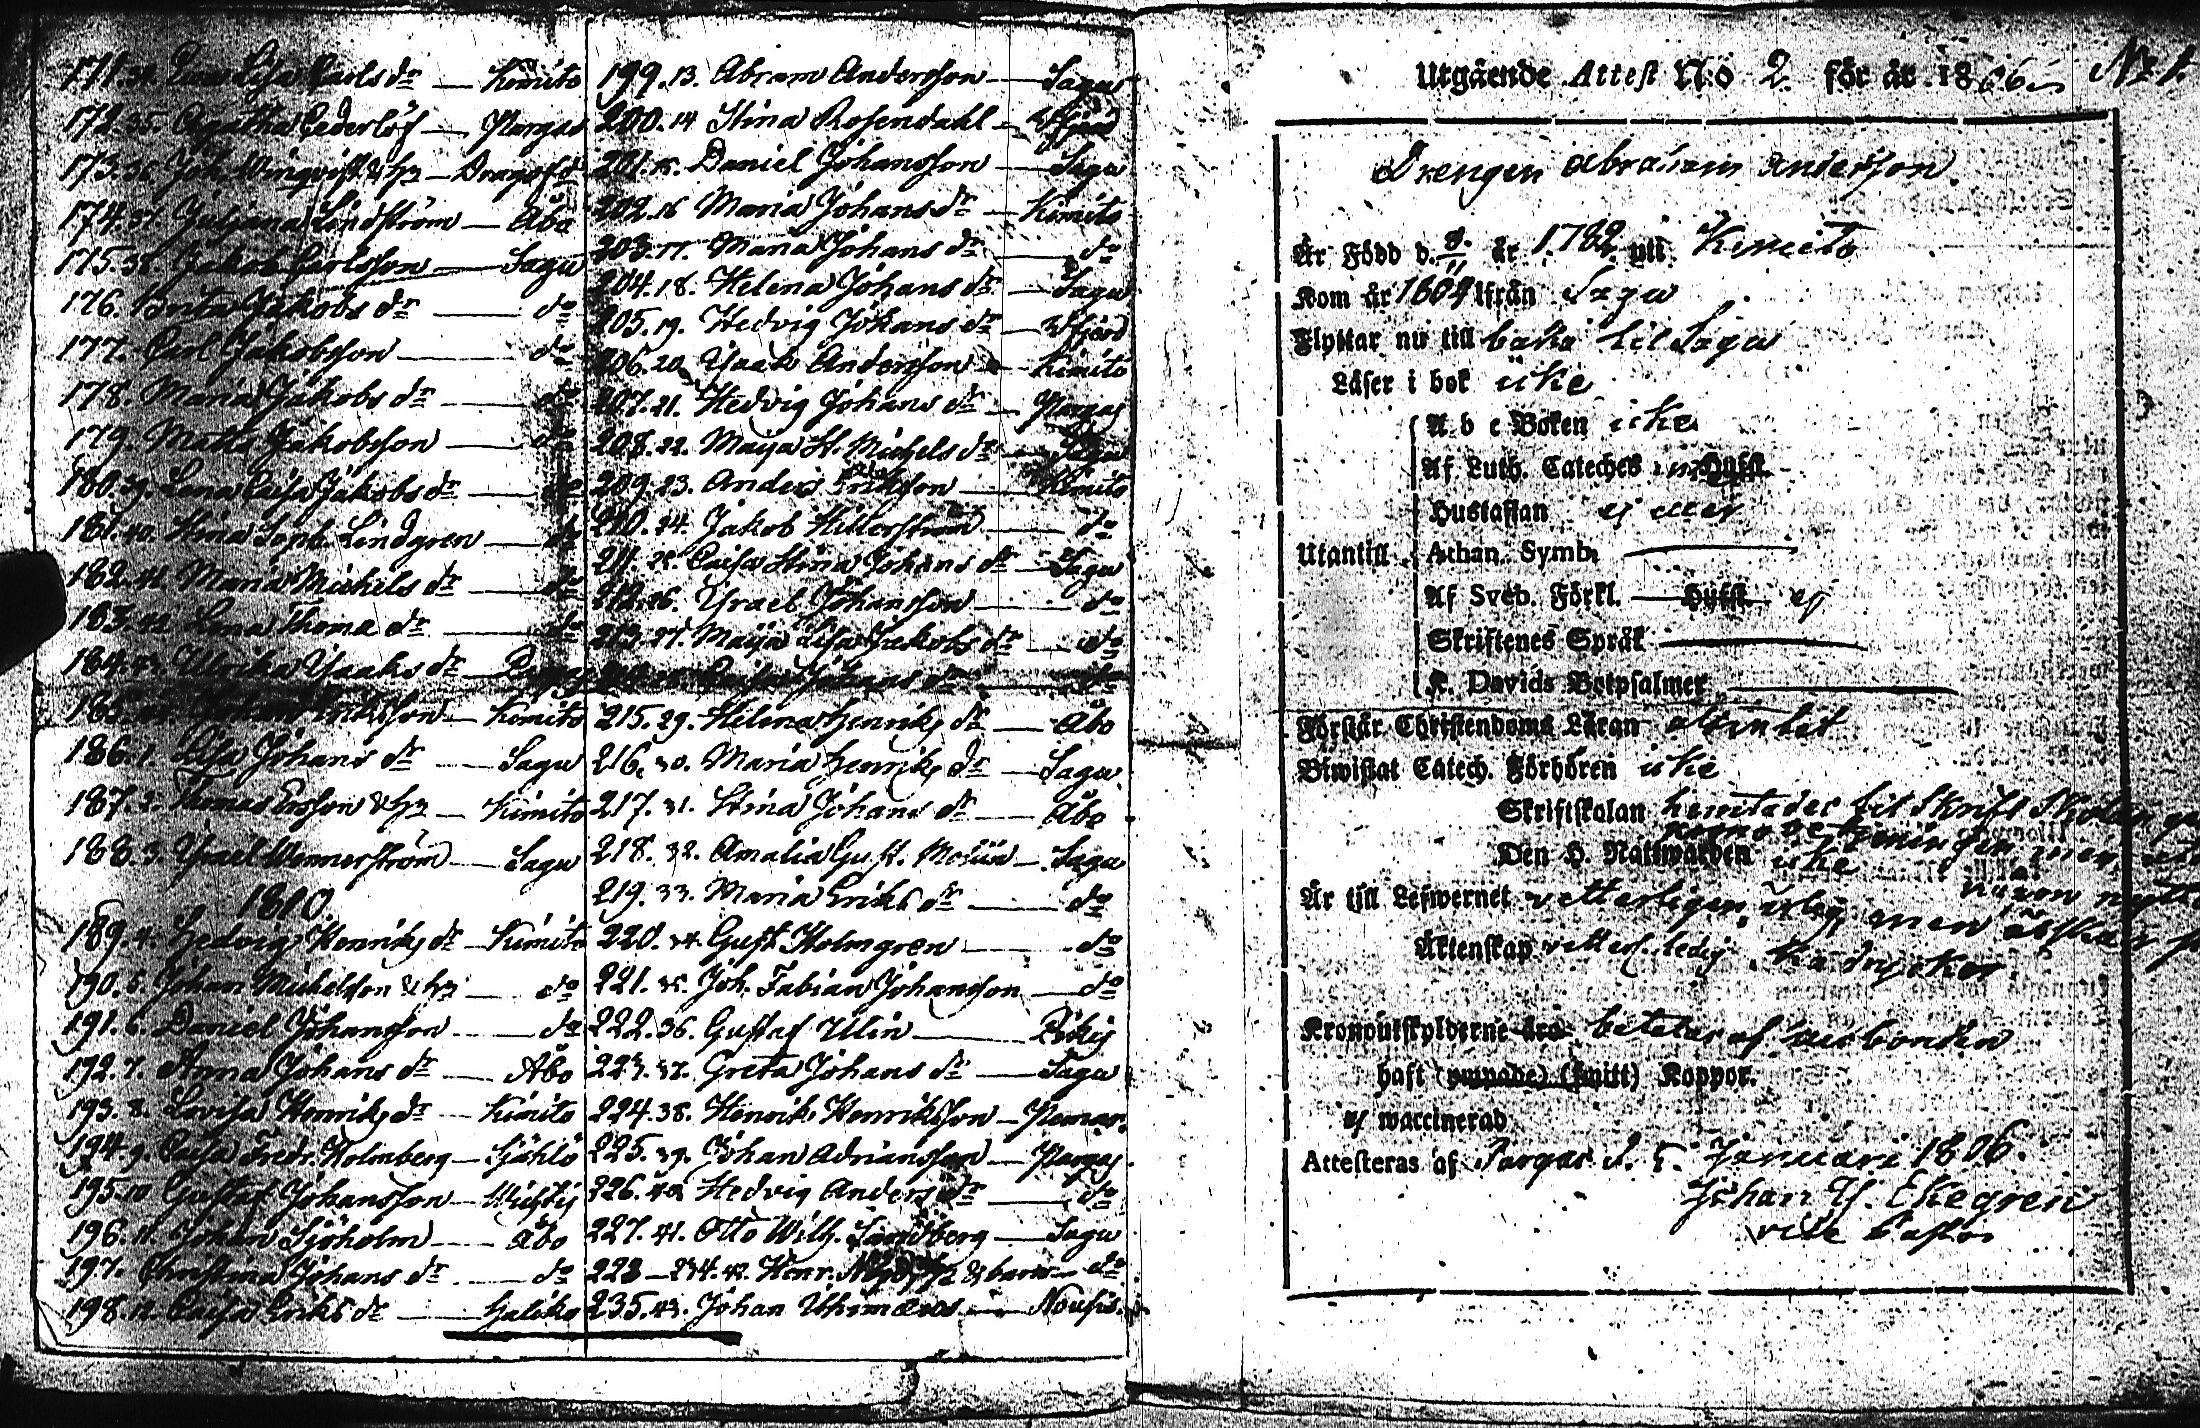 171. 34. Lisa Carls dr — Kimito
172. 35. Agatha Cederlöf — Pargas
173. 36. Joh. Winqvist & h — Dragsf.
174. 37. Juljana Lindström — Åbo
175. 38. Jakob Carlsson — Sagu
176. Brita Jakobs dr — do
177. Carl Jakobsson — do
178. Maria Jakobs dr — do
179. Matts Jakobsson — do
180. 39. Lena Caisa Jakobs dr — do
181. 40. Stina Soph. Lindgren — do
182. 41. Maria Michels dr — do
183. 42. Lena Thoma dr — do
184. 43. Ulrika Isaks dr —
185. Eriksson — Kimito
186. 1. Lisa Johans dr — Sagu
187. 2. Thomas Ersson & h — Kimito
188. 3. Israel Wennerström — Sagu
1810
189. 4. Hedvig Henriks dr — Kimito
190. 5. Johan Michelsson & h — do
191. 6. Daniel Johansson — do
192. 7. Anna Johans dr — Åbo
193. 8. Lovisa Henriks dr — Kimito
194. 9. Caisa Fredr. Holmberg — Sjöhlö
195. 10. Gustaf Johansson —
196. 11. Johan Sjöholm — Åbo
197. Christina Johans dr — do
198. 12. Caisa Eriks dr — Haliko
199. 13. Abram Andersson — Sagu
200. 14. Stina Rosendahl — Wfjerd
201. 15. Daniel Johansson — Sagu
202. 16. Maria Johans dr — Kimito
203. 17. Maria Johans dr — do
204. 18. Helena Johans dr — Sagu
205. 19. Hedvig Johans dr — Wfjerd
206. 20. Isaak Andersson — Kimito
207. 21. Hedvig Johans dr — Pargas
208. 22. Maya St. Michels dr — Sagu
209. 23. Anders Eriksson — Kimito
210. 24. Jakob Hillerström — do
211. 25. Caisa Stina Johans dr — Sagu
212. 26. Israel Johansson — do
213. 27. Maija Lisa Jakobs dr — do
214. 28. Caisa Johans dr — do
215. 29. Helena Henriks dr — Åbo
216. 30. Maria Henriks dr — Sagu
217. 31. Stina Johans dr — Åbo
218. 32. Amalia Gust. — Sagu
219. 33. Maria Eriks dr — do
220. 34. Gust. Holmgren — do
221. 35. Joh. Fabian Johansson — do
222. 36. Gustaf Ulin — Pikis
223. 37. Greta Johans dr — Sagu
224. 38. Henrik Henriksson — Pemar.
225. 39. Johan Adriansson — Pargas
226. 40. Hedvig Anders dr — do
227. 41. Otto Wilh. Sandberg — Sagu
228–234. 42. Henr. & barn — do
235. 43. Johan — Nousis.
Utgående Attest N:o 2. för år 1806 No 1.
Drengen Abraham Andersson.
Är Född d. 8/11 år 1782 uti Kimito
Kom år 1804 ifrån Sagu
Flyttar nu till baka til Sagu
Läser i bok icke
A b c Boken icke
Af Luth. Cateches Hufst.
Hustaflan ej eller
Utantill Athan. Symb. —
Af Sveb. Förkl. — Hufst. ej
Skriftenes Språk —
K. Davids Botpsalmer —
Förstår Christendoms Läran Alsintet
Biwistat Catech. Förhören icke
Skriftskolan til Skrift Skolan
Den H. Nattwarden icke
Är till Lefwernet vetterligen ärlig, men älskar
Äktenskap vetterl. ledig. drycker.
Kronoutskylderne äro betalas af husbonden
haft (ympade) (smitt) Koppor.
ej waccinerad
Attesteras af Pargas d. 5. Januari 1806.
Johan H. Ekegren
vice Past.